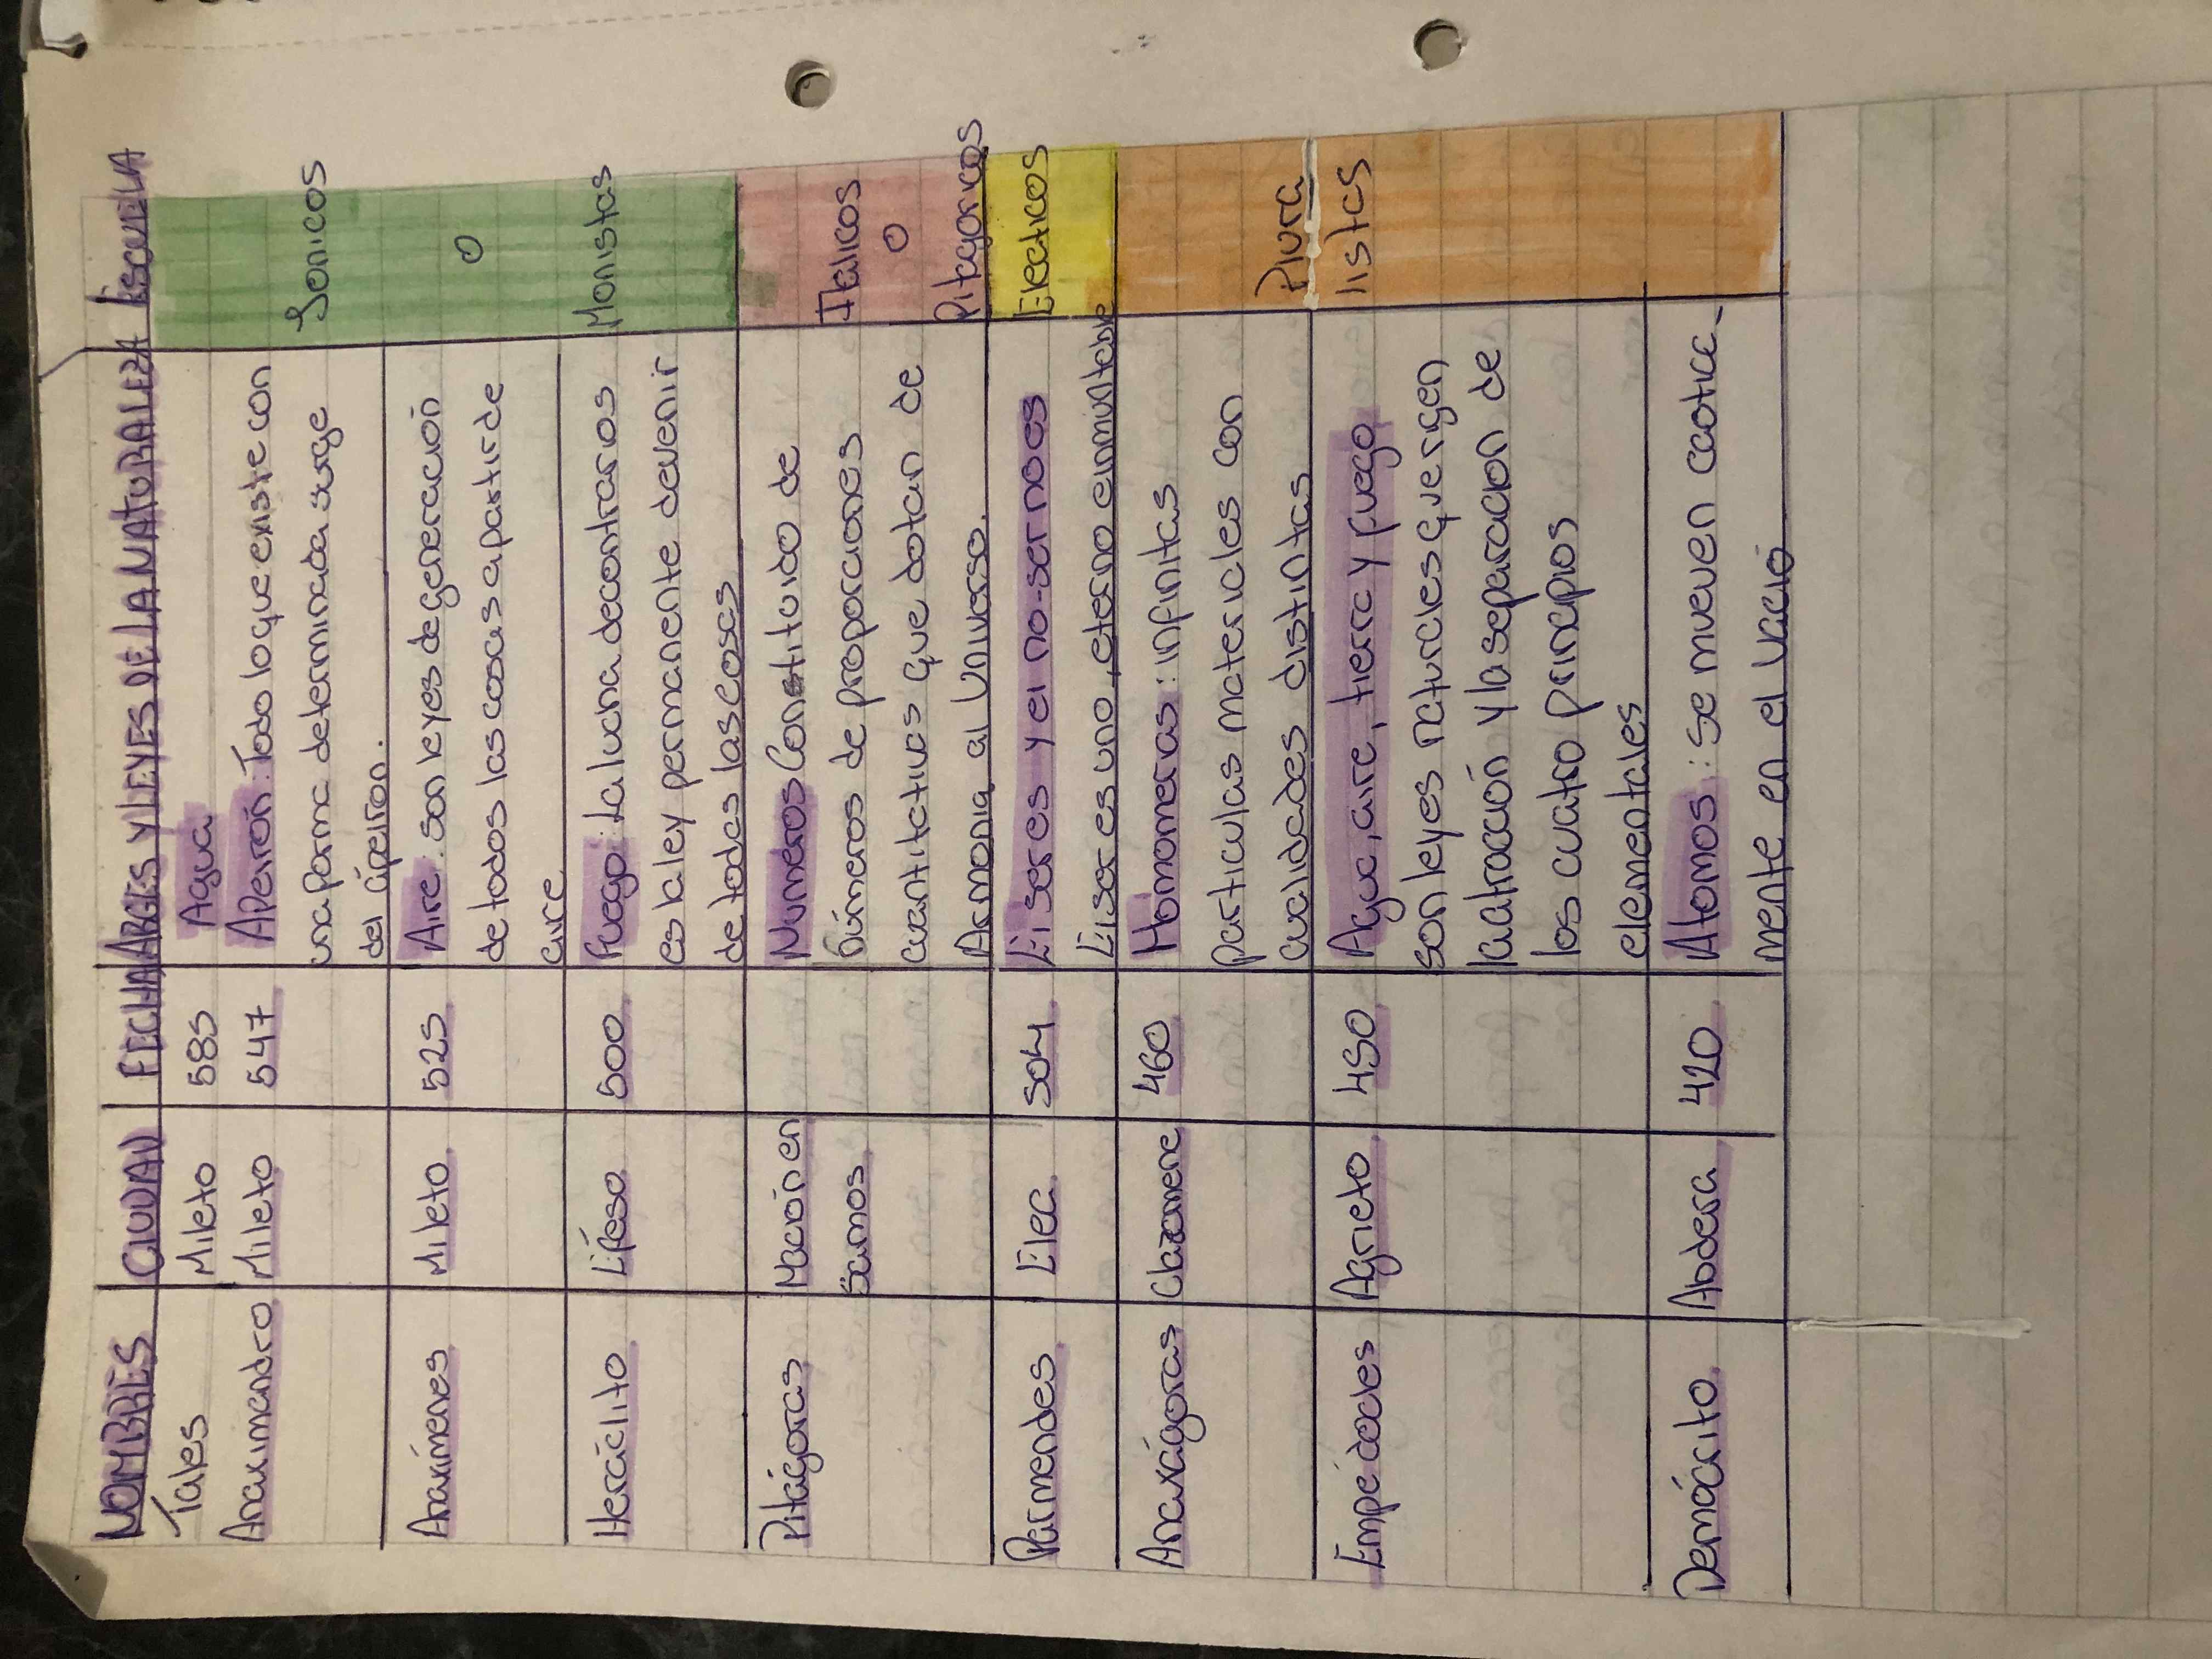 NOMBRES CIUDAD FECHA ARGES Y LEYES DE LA NATURALEZA ESCUELA
Tales Mileto 585 Agua
Anaximandro Mileto 547 Apeirón: Todo lo que existe con
una forma determinada surge Jonicos
del ápeiron.
Anaxímenes Mileto 525 Aire: son leyes de generación
de todos las cosas a partir de o
aire
Heráclito Éfeso 500 Fuego: La lucha de contrarios Monistas
es la ley permanente devenir
de todas las cosas
Pitágoras Nació en Numeros Constituido de
Samos números de proporciones Italicos
cuantitativas que dotan de o
Armonia al Universo. Pitagoricos
Parmendes Elea 504 El ser es y el no-ser no es Eleaticos
El ser es uno, eterno e inmutable
Anaxágoras Clazomene 460 Homomeras: infinitas
particulas materiales con
cualidades distintas Plura
Empédocles Agrieto 450 Agua, aire, tierra y fuego listas
son leyes naturales que rigen
la atracción y la separacion de
los cuatro principios
elementales
Demócrito Abdera 420 Atomos: se mueven caotica-
mente en el vació